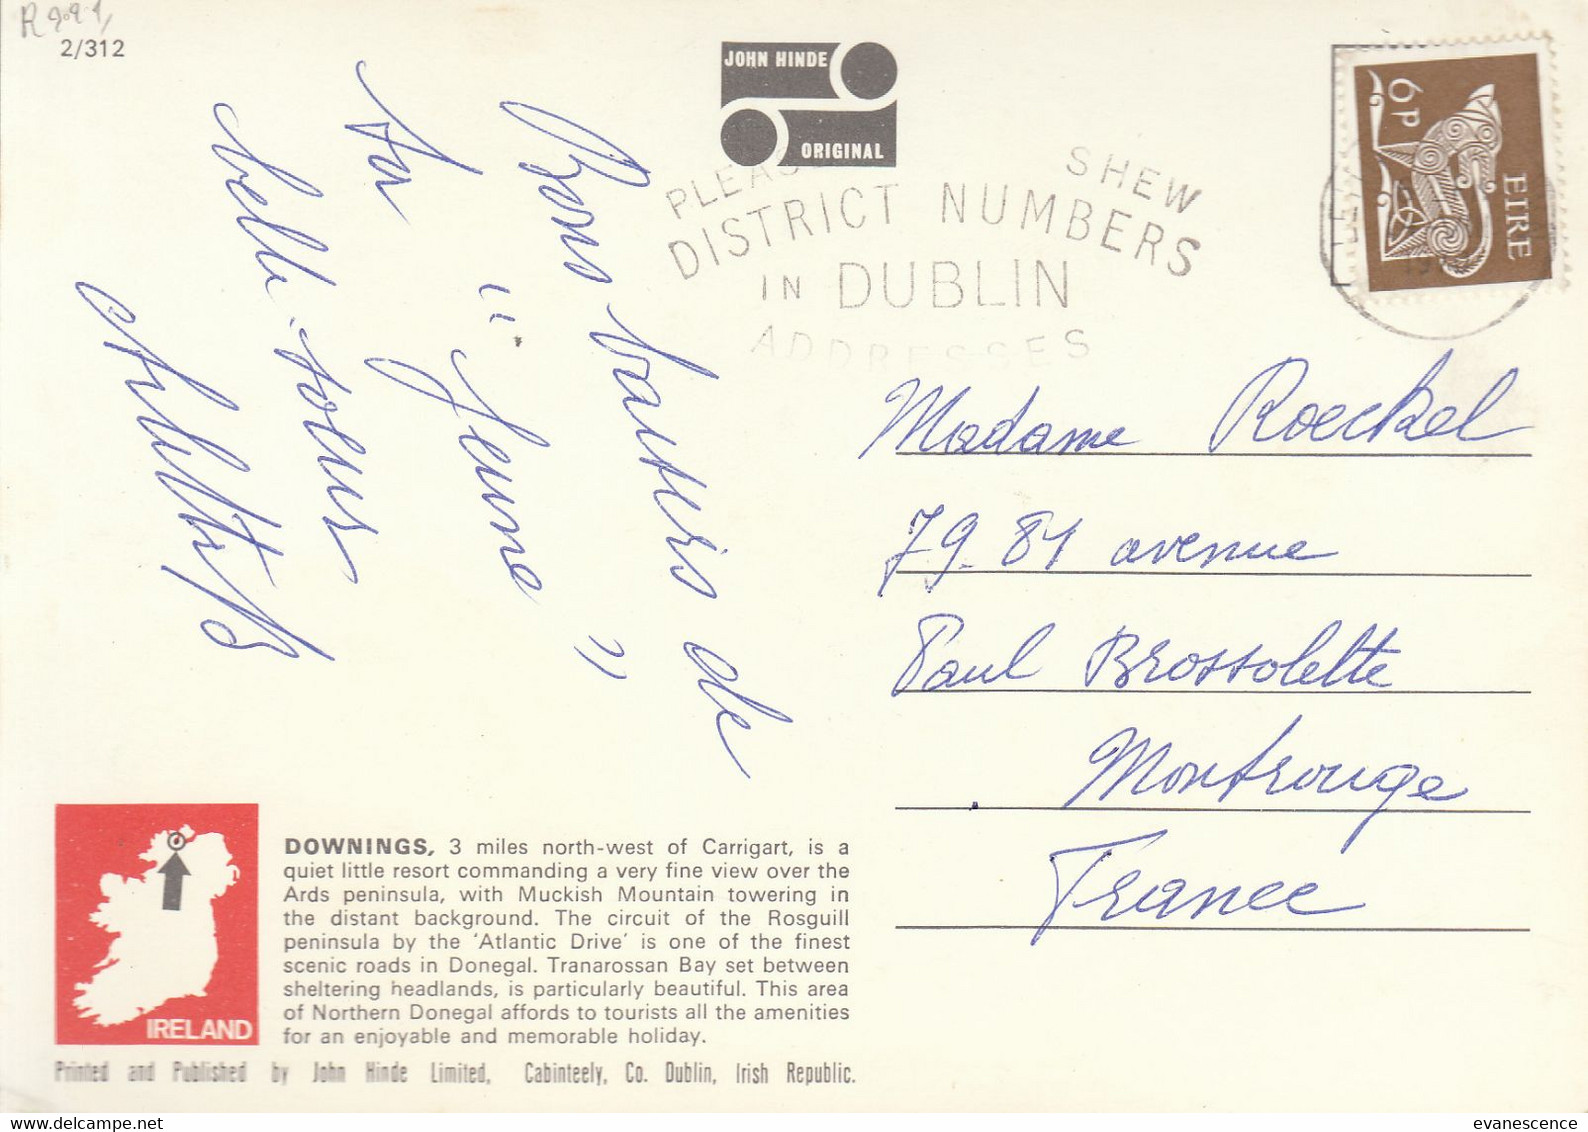 2/312
JOHN HINDE
ORIGINAL
PLEASE SHEW
DISTRICT NUMBERS
IN DUBLIN
ADDRESSES
6p
EIRE
Bons baisers de
ta
" Jeune "
belle-soeur
Madame Roeckel
79-81 avenue
Paul Brossolette
Montrouge
France
DOWNINGS, 3 miles north-west of Carrigart, is a
quiet little resort commanding a very fine view over the
Ards peninsula, with Muckish Mountain towering in
the distant background. The circuit of the Rosguill
peninsula by the 'Atlantic Drive' is one of the finest
scenic roads in Donegal. Tranarossan Bay set between
sheltering headlands, is particularly beautiful. This area
of Northern Donegal affords to tourists all the amenities
for an enjoyable and memorable holiday.
IRELAND
Printed and Published by John Hinde Limited, Cabinteely, Co. Dublin, Irish Republic.
evanescence